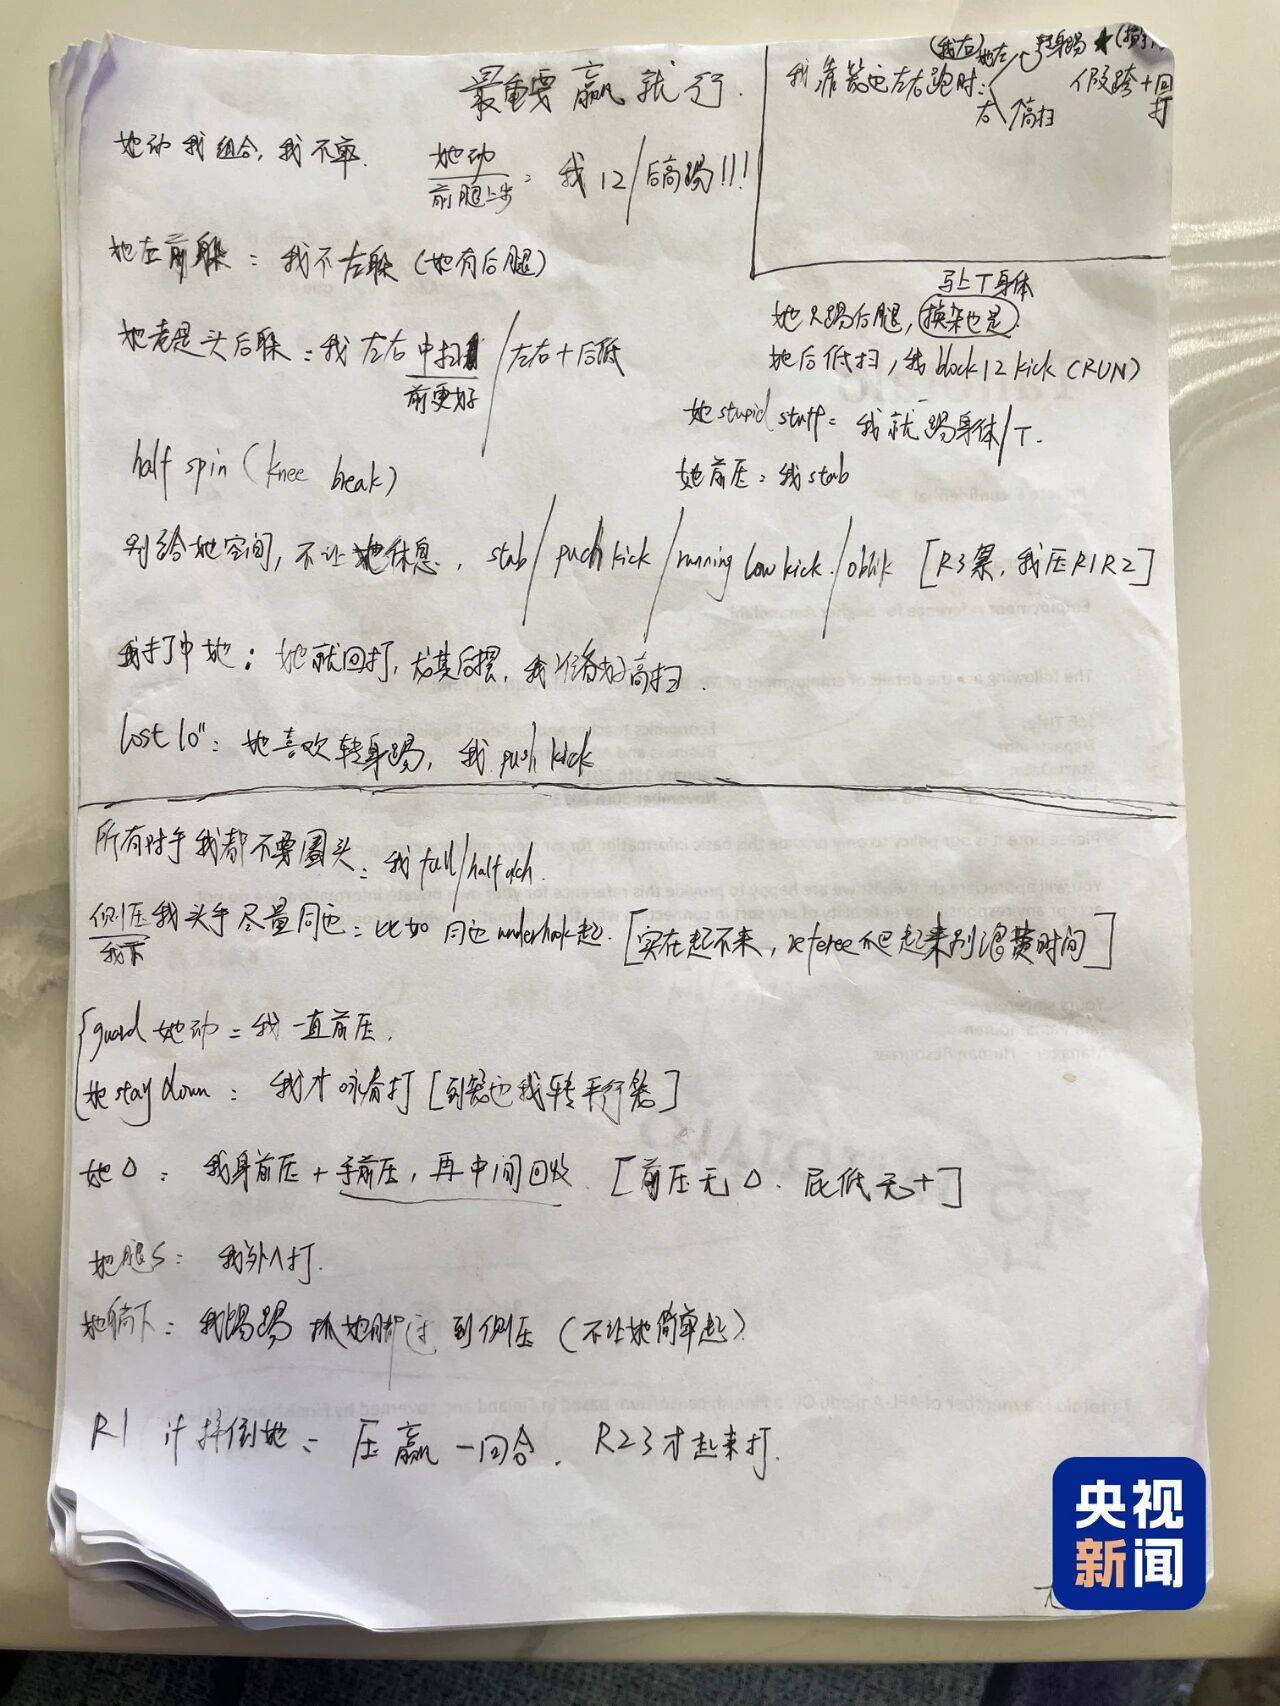 最重要 赢就行.
(我右)她左 转身踢 ★
我靠笼边左右跑时: 假跨+回打
右 高扫
她动我组合, 我不急.
她动
前腿上步 : 我12/后高踢!!!
她左前躲 : 我不左躲 (她有后腿)
她老是头后躲 : 我左右中扫/左右+后低
前更好
马上T身体
她只踢后腿, 换架也是.
她后低扫, 我block 12 kick (RUN)
她stupid stuff = 我就踢身体/T.
她前压 : 我stab
half spin (knee break)
别给她空间, 不让她休息. stab/push kick/running low kick./oblik [R3累, 我压R1R2]
我打中她 : 她就回打, 尤其后摆, 我准备好高扫.
last 10" : 她喜欢转身踢, 我push kick
所有对手我都不要圈头 : 我full/half
侧压我头手尽量同边 : 比如同边underhook起. [实在起不来, referee 起来别浪费时间]
我下
guard她动 = 我一直前压.
她stay down : 我才 打 [到笼边我转平行笼]
她△ : 我身前压+手前压, 再中间回收. [前压无△. 屁低无+]
她腿S : 我外入打.
她躺下 : 我踢踢 抓她脚 到侧压 (不让她简单起)
R1 if摔倒她 = 压赢一回合. R23才起来打.
央视
新闻